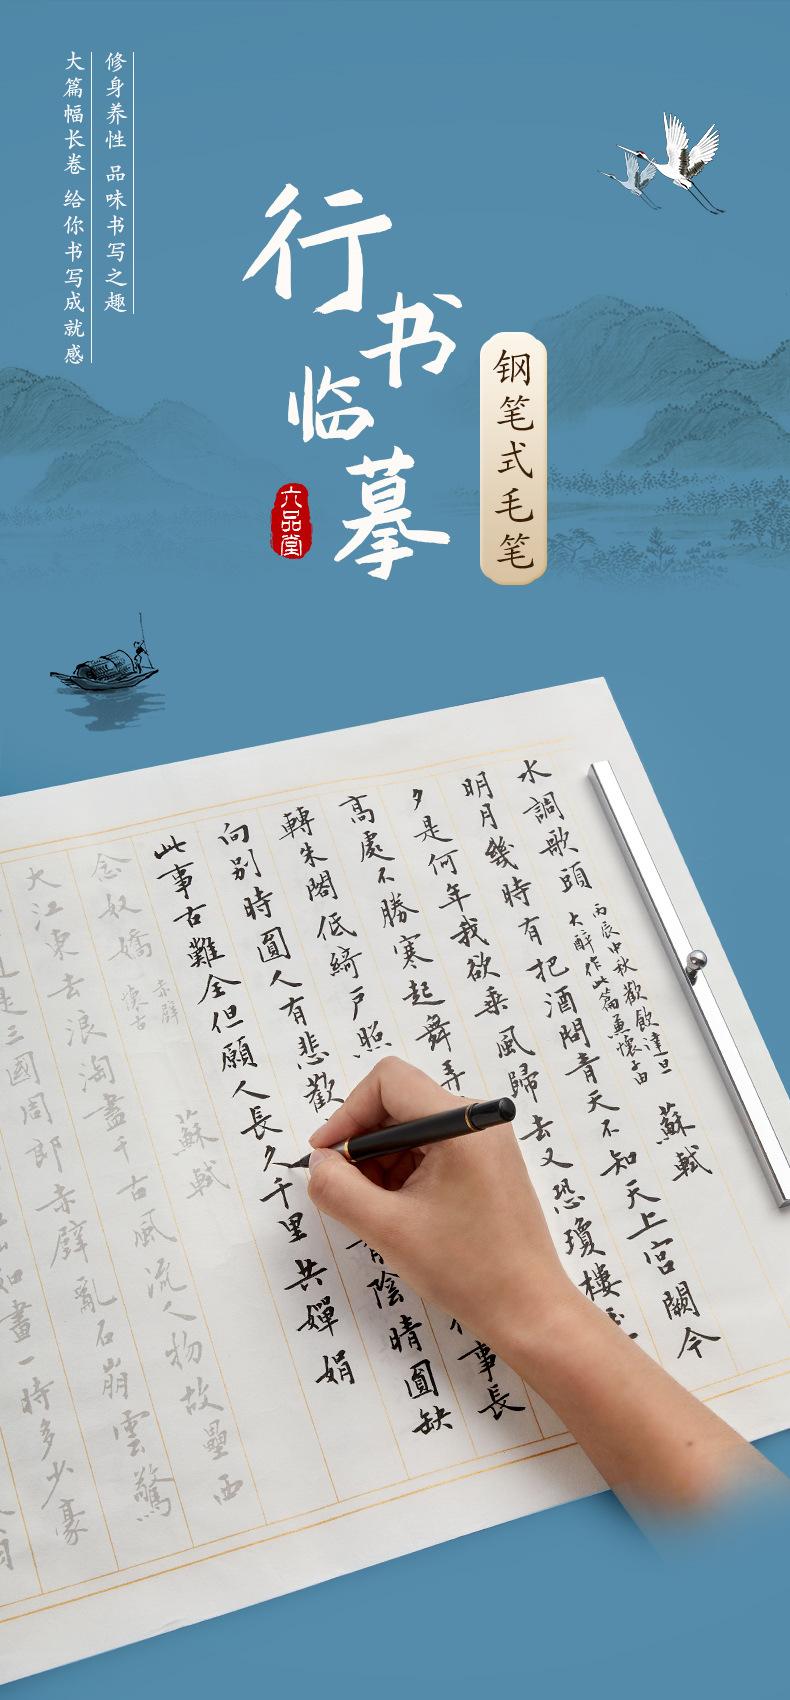 修身养性 品味书写之趣
大篇幅长卷 给你书写成就感
行书临摹
六品堂
钢笔式毛笔
水調歌頭
丙辰中秋歡飲達旦
大醉作此篇兼懷子由
蘇軾
明月幾時有把酒問青天不知天上宮闕今
夕是何年我欲乘風歸去又恐瓊樓
高處不勝寒起舞弄
轉朱閣低綺戶照
事長
向別時圓人有悲歡
陰晴圓缺
此事古難全但願人長久千里共嬋娟
念奴嬌
赤壁
懷古
蘇軾
大江東去浪淘盡千古風流人物故壘西
是三國周郎赤壁亂石崩雲驚
如畫一時多少豪